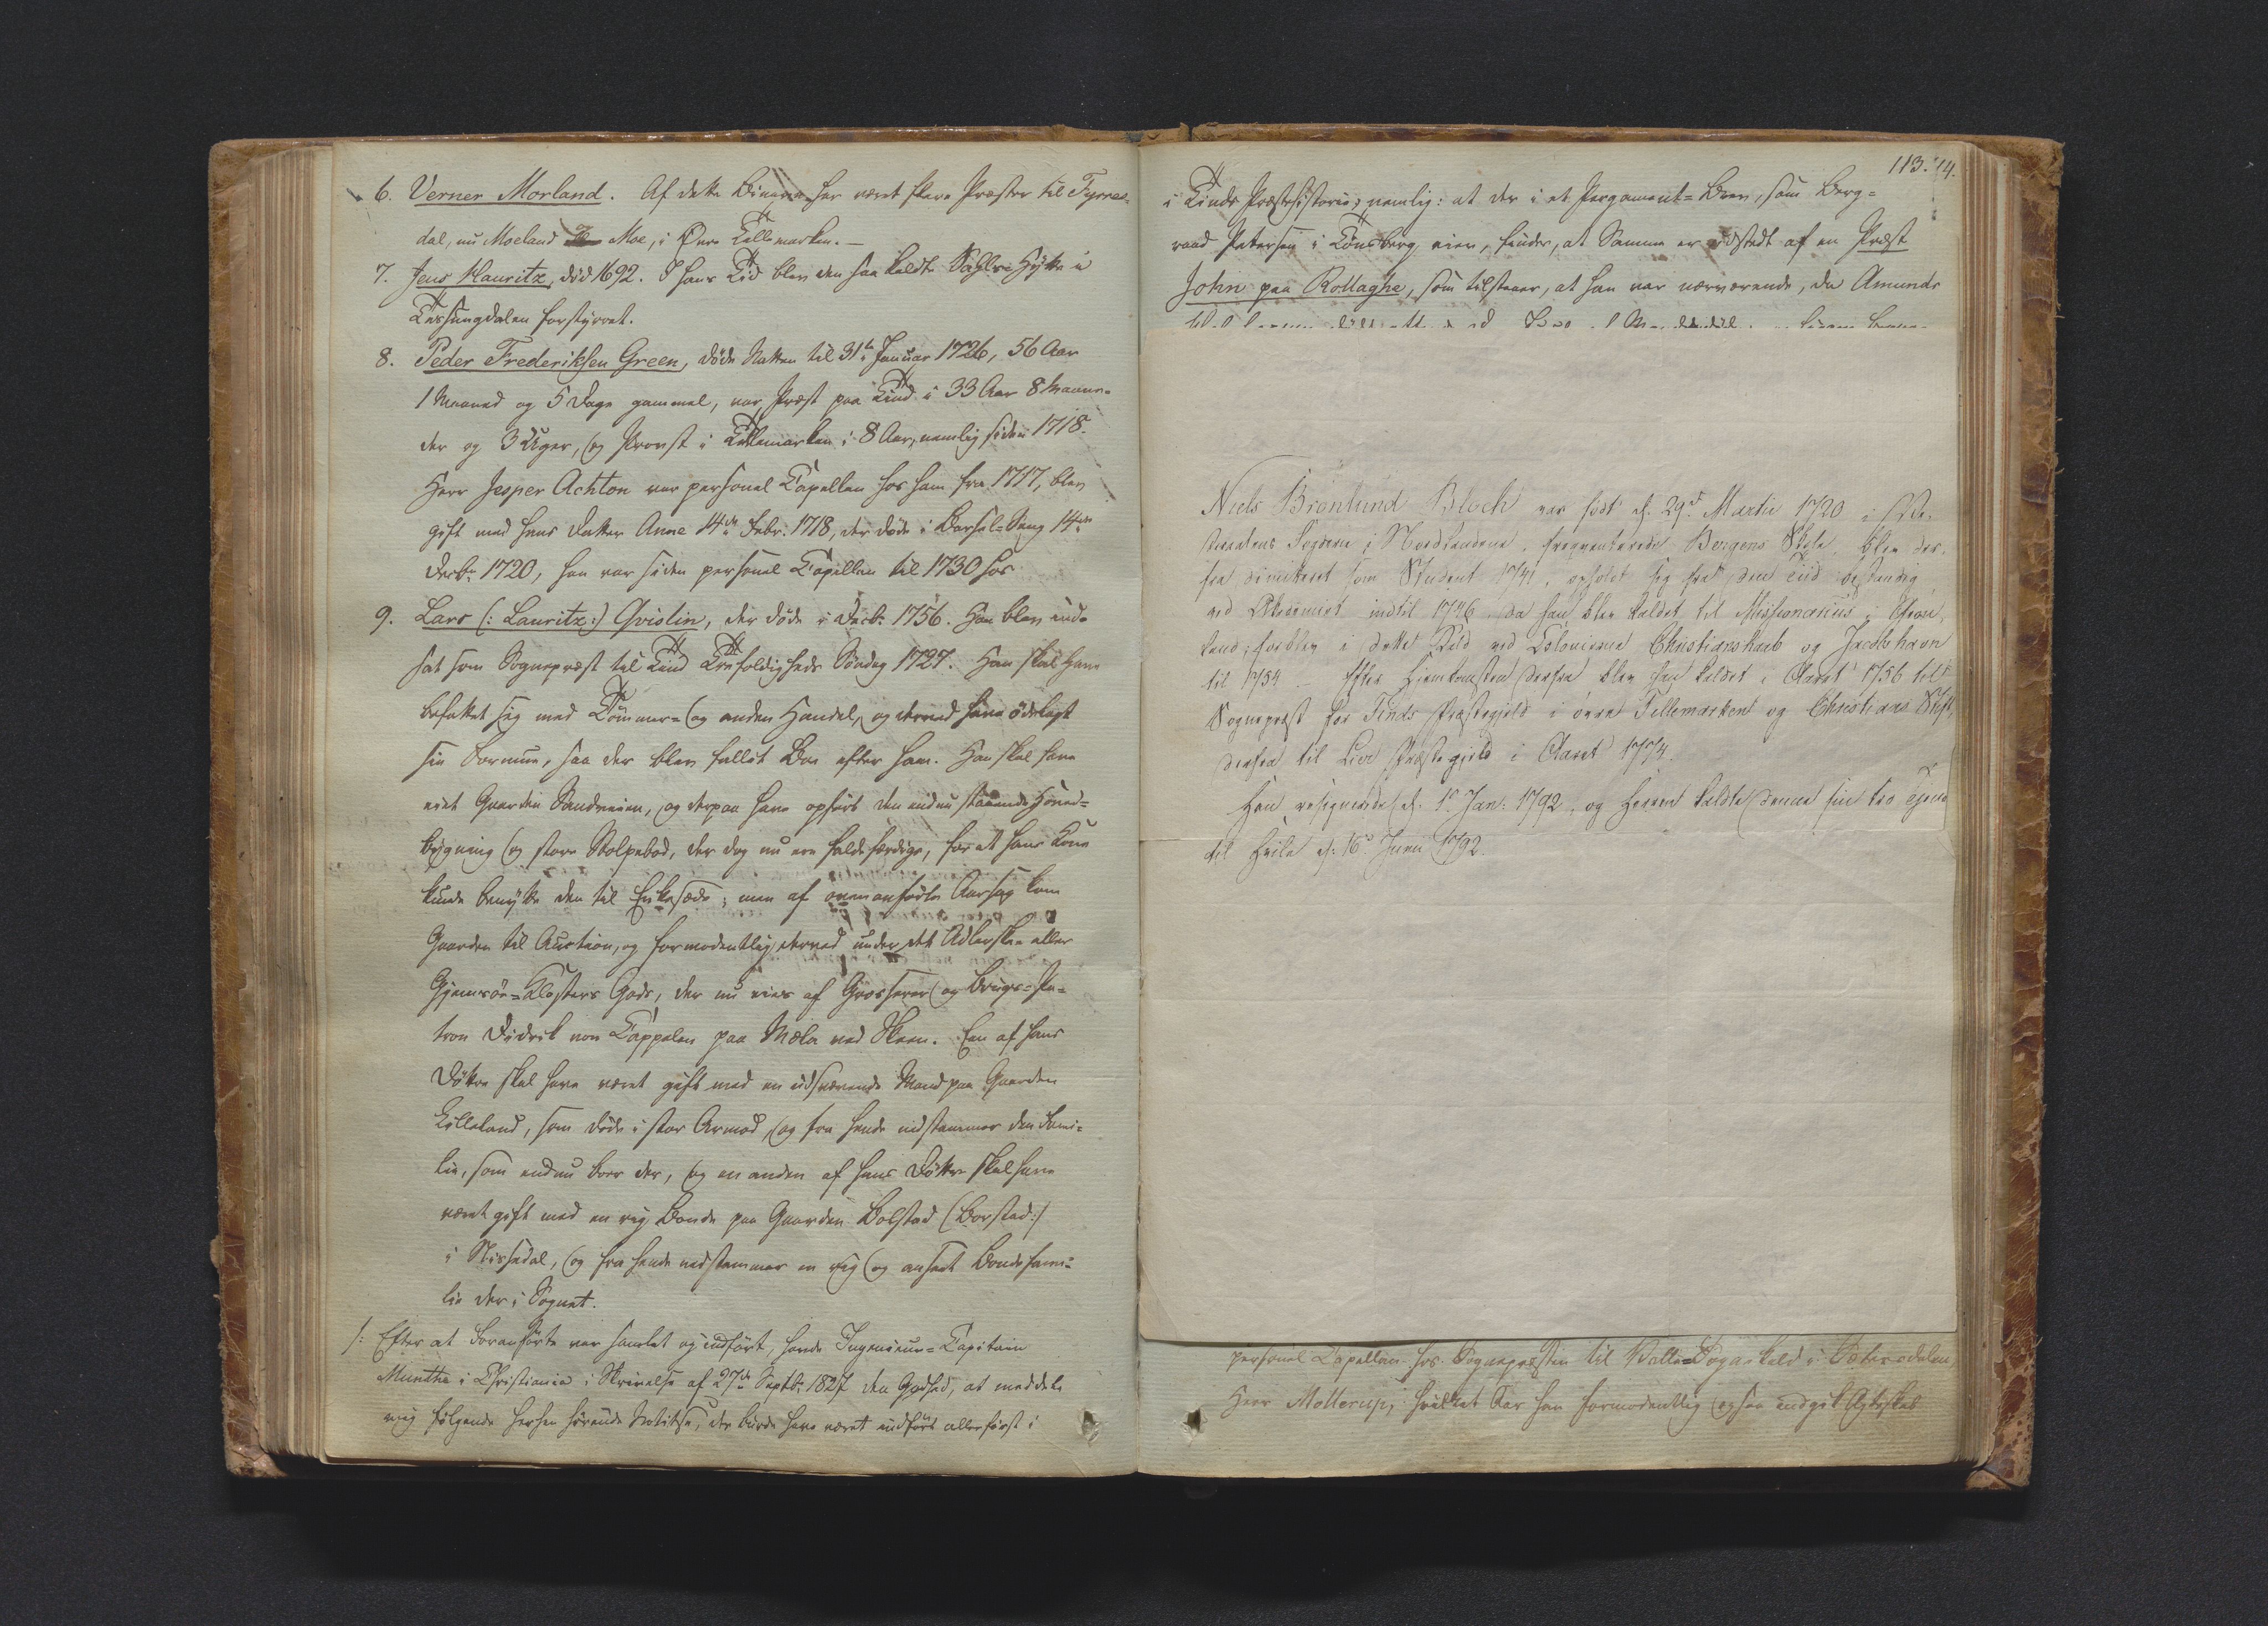 6. Verner Morland. Af dette Binavn har været flere Præster til Tyrres-
dal, nu Moeland Moe, i Øvre Tellemarken. —
7. Jens Mauritz, død 1692. I hans Tid blev den saa kaldte Sahle-Hytte i
Tessungdalen forstyrret.
8. Peder Frederiksen Green, døde Natten til 31te Januar 1726, 56 Aar
1 Maaned og 5 Dage gammel, var Præst paa Tind i 33 Aar 8 Maane-
der og 3 Uger, og Provst i Tellemarken i 8 Aar, nemlig siden 1718.
Herr Jesper Achton var personel Capellan hos ham fra 1717, blev
gift med hans Datter Anne 14de Febr: 1718, der døde i Barsel-Seng 14de
Decbr 1720, han var siden personel Capellan til 1730 hos
9. Lars (: Lauritz:) Qvislin, der døde i Decbr 1756. Han blev ind-
sat som Sognepræst til Tind Trefoldigheds Søndag 1727. Han skal have
befattet sig med Tømmer- og anden Handel, og derved have ødelagt
sin Formue, saa der blev fallit Boe efter ham. Han skal have
eiet Gaarden Sandveien, og derpaa have opført den endnu staaende Hoved-
bygning og store Stolpebod, der dog nu ere faldefærdige, for at hans Kone
kunde benytte den til Enkesæde; men af ovenanførte Aarsag kom
Gaarden til Auction, og formodentlig derved under det Adlerske eller
Gjemsøe-Klosters Gods, der nu eies af Grosserer og Brugs-Pa-
tron Didrik von Cappelen paa Mæla ved Skeen. Een af hans
Døttre skal have været gift med en udsværende Mand paa Gaarden
Lilleland, som døde i stor Armod, og fra hende nedstammer den Fami-
lie, som endnu boer der, og en anden af hans Døttre skal have
været gift med en rig Bonde paa Gaarden Bolstad (Borstad:/
i Nissedal, og fra hende nedstammer en rig og anseet Bondefami-
lie der i Sognet.
/: Efter at Foranførte var samlet og indført, havde Ingenieur-Capitain
Munthe i Christiania i Skrivelse af 27de Septbr 1827 den Godhed, at meddele
mig følgende herhen hørende Notitse, der burde have været indført allerførst i
113. 14.
i Tinds Præstehistorie; nemlig: at der i et Pergament-Brev, som Berg-
raad Petersen i Kongsberg eier, findes, at Samme er udstedt af en Præst
John paa Rollaghe, som tilstaaer, at han var nærværende, da Amunds
Niels Brønlund Bloch var født d. 29d Martii 1720 i
Fogderie i Nordlandene, frequenterede Bergens Skole, blev der-
fra dimitteret som Student 1741, opholdt sig fra den Tiid bestandig
ved Academiet indtil 1746 da han blev kaldet til Missionarius i Grøn-
land, forblev i dette Kald ved Colonierne Christianshaab og Jacobshavn
til 1754 — Efter Hjemkomsten derfra blev han kaldet i Aaret 1756 til
Sognepræst for Tinds Præstegjeld i øvre Tellemarken og Christians Stift,
derfra til Lier Præstegjeld i Aaret 1774.
Han resignerede d. 1e Jan: 1792, og Herren kaldte denne sin tro Tjener
til Hvile d: 16d Junii 1792.
personel Capellan hos Sognepræsten til Valle-Sognekald i Sætersdalen,
Herr Mollerup, hvilket Aar han formodentlig ogsaa indgik Ægteskab